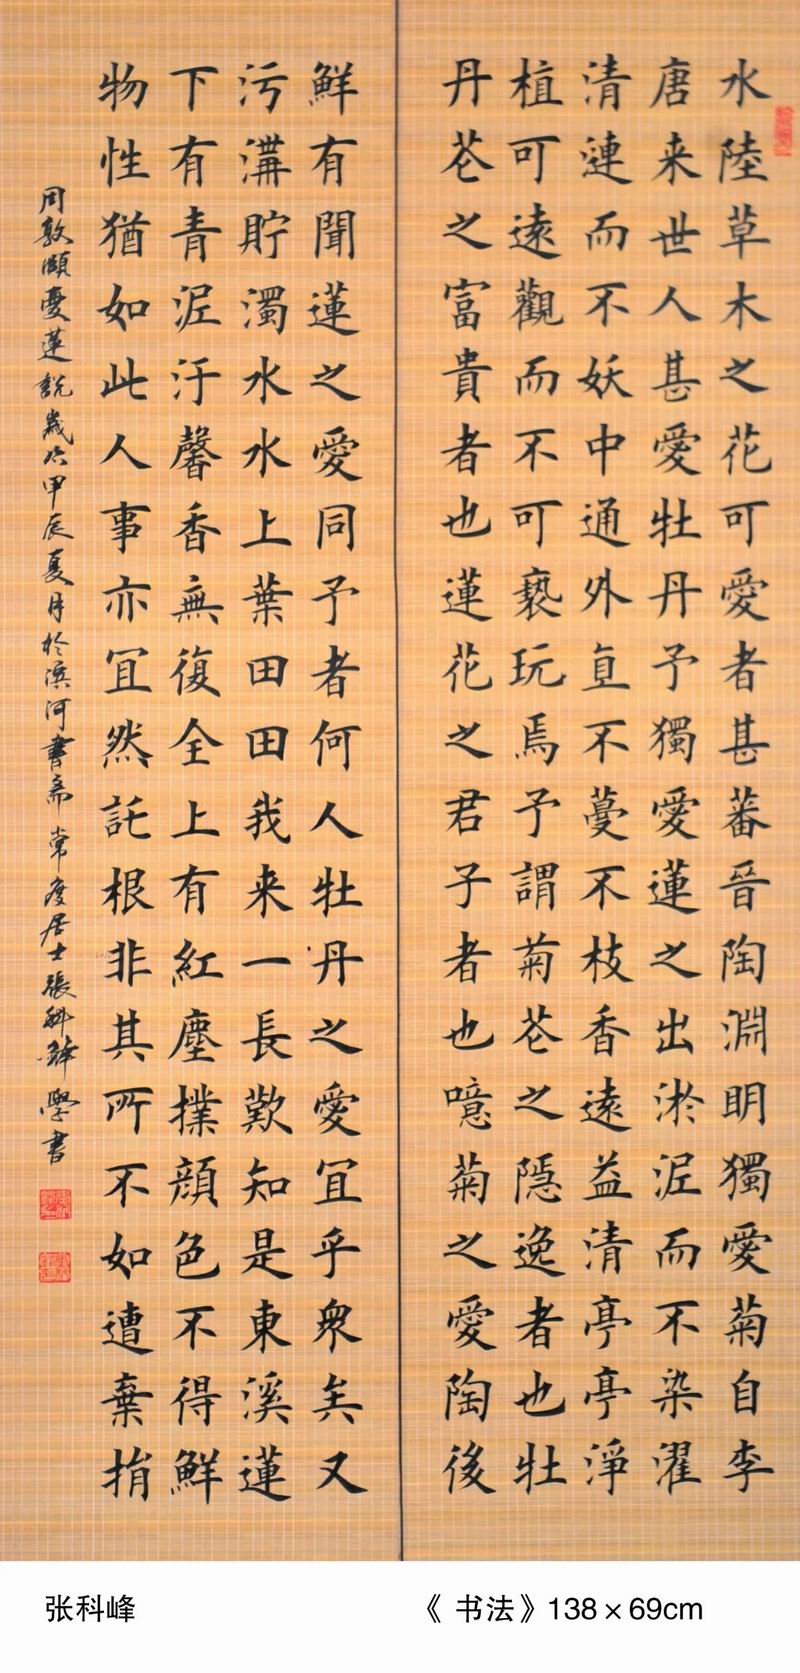 水陸草木之花可愛者甚蕃晉陶淵明獨愛菊自李
唐来世人甚愛牡丹予獨愛蓮之出淤泥而不染濯
清漣而不妖中通外直不蔓不枝香遠益清亭亭淨
植可遠觀而不可褻玩焉予謂菊花之隱逸者也牡
丹花之富貴者也蓮花之君子者也噫菊之愛陶後
鮮有聞蓮之愛同予者何人牡丹之愛宜乎衆矣又
污溝貯濁水水上葉田田我来一長歎知是東溪蓮
下有青泥汙馨香無復全上有紅塵撲顏色不得鮮
物性猶如此人事亦宜然託根非其所不如遭棄捐
周敦頤愛蓮說歲次甲辰夏月於濱河書斋常度居士張科鋒學書
张科峰
《书法》138×69cm